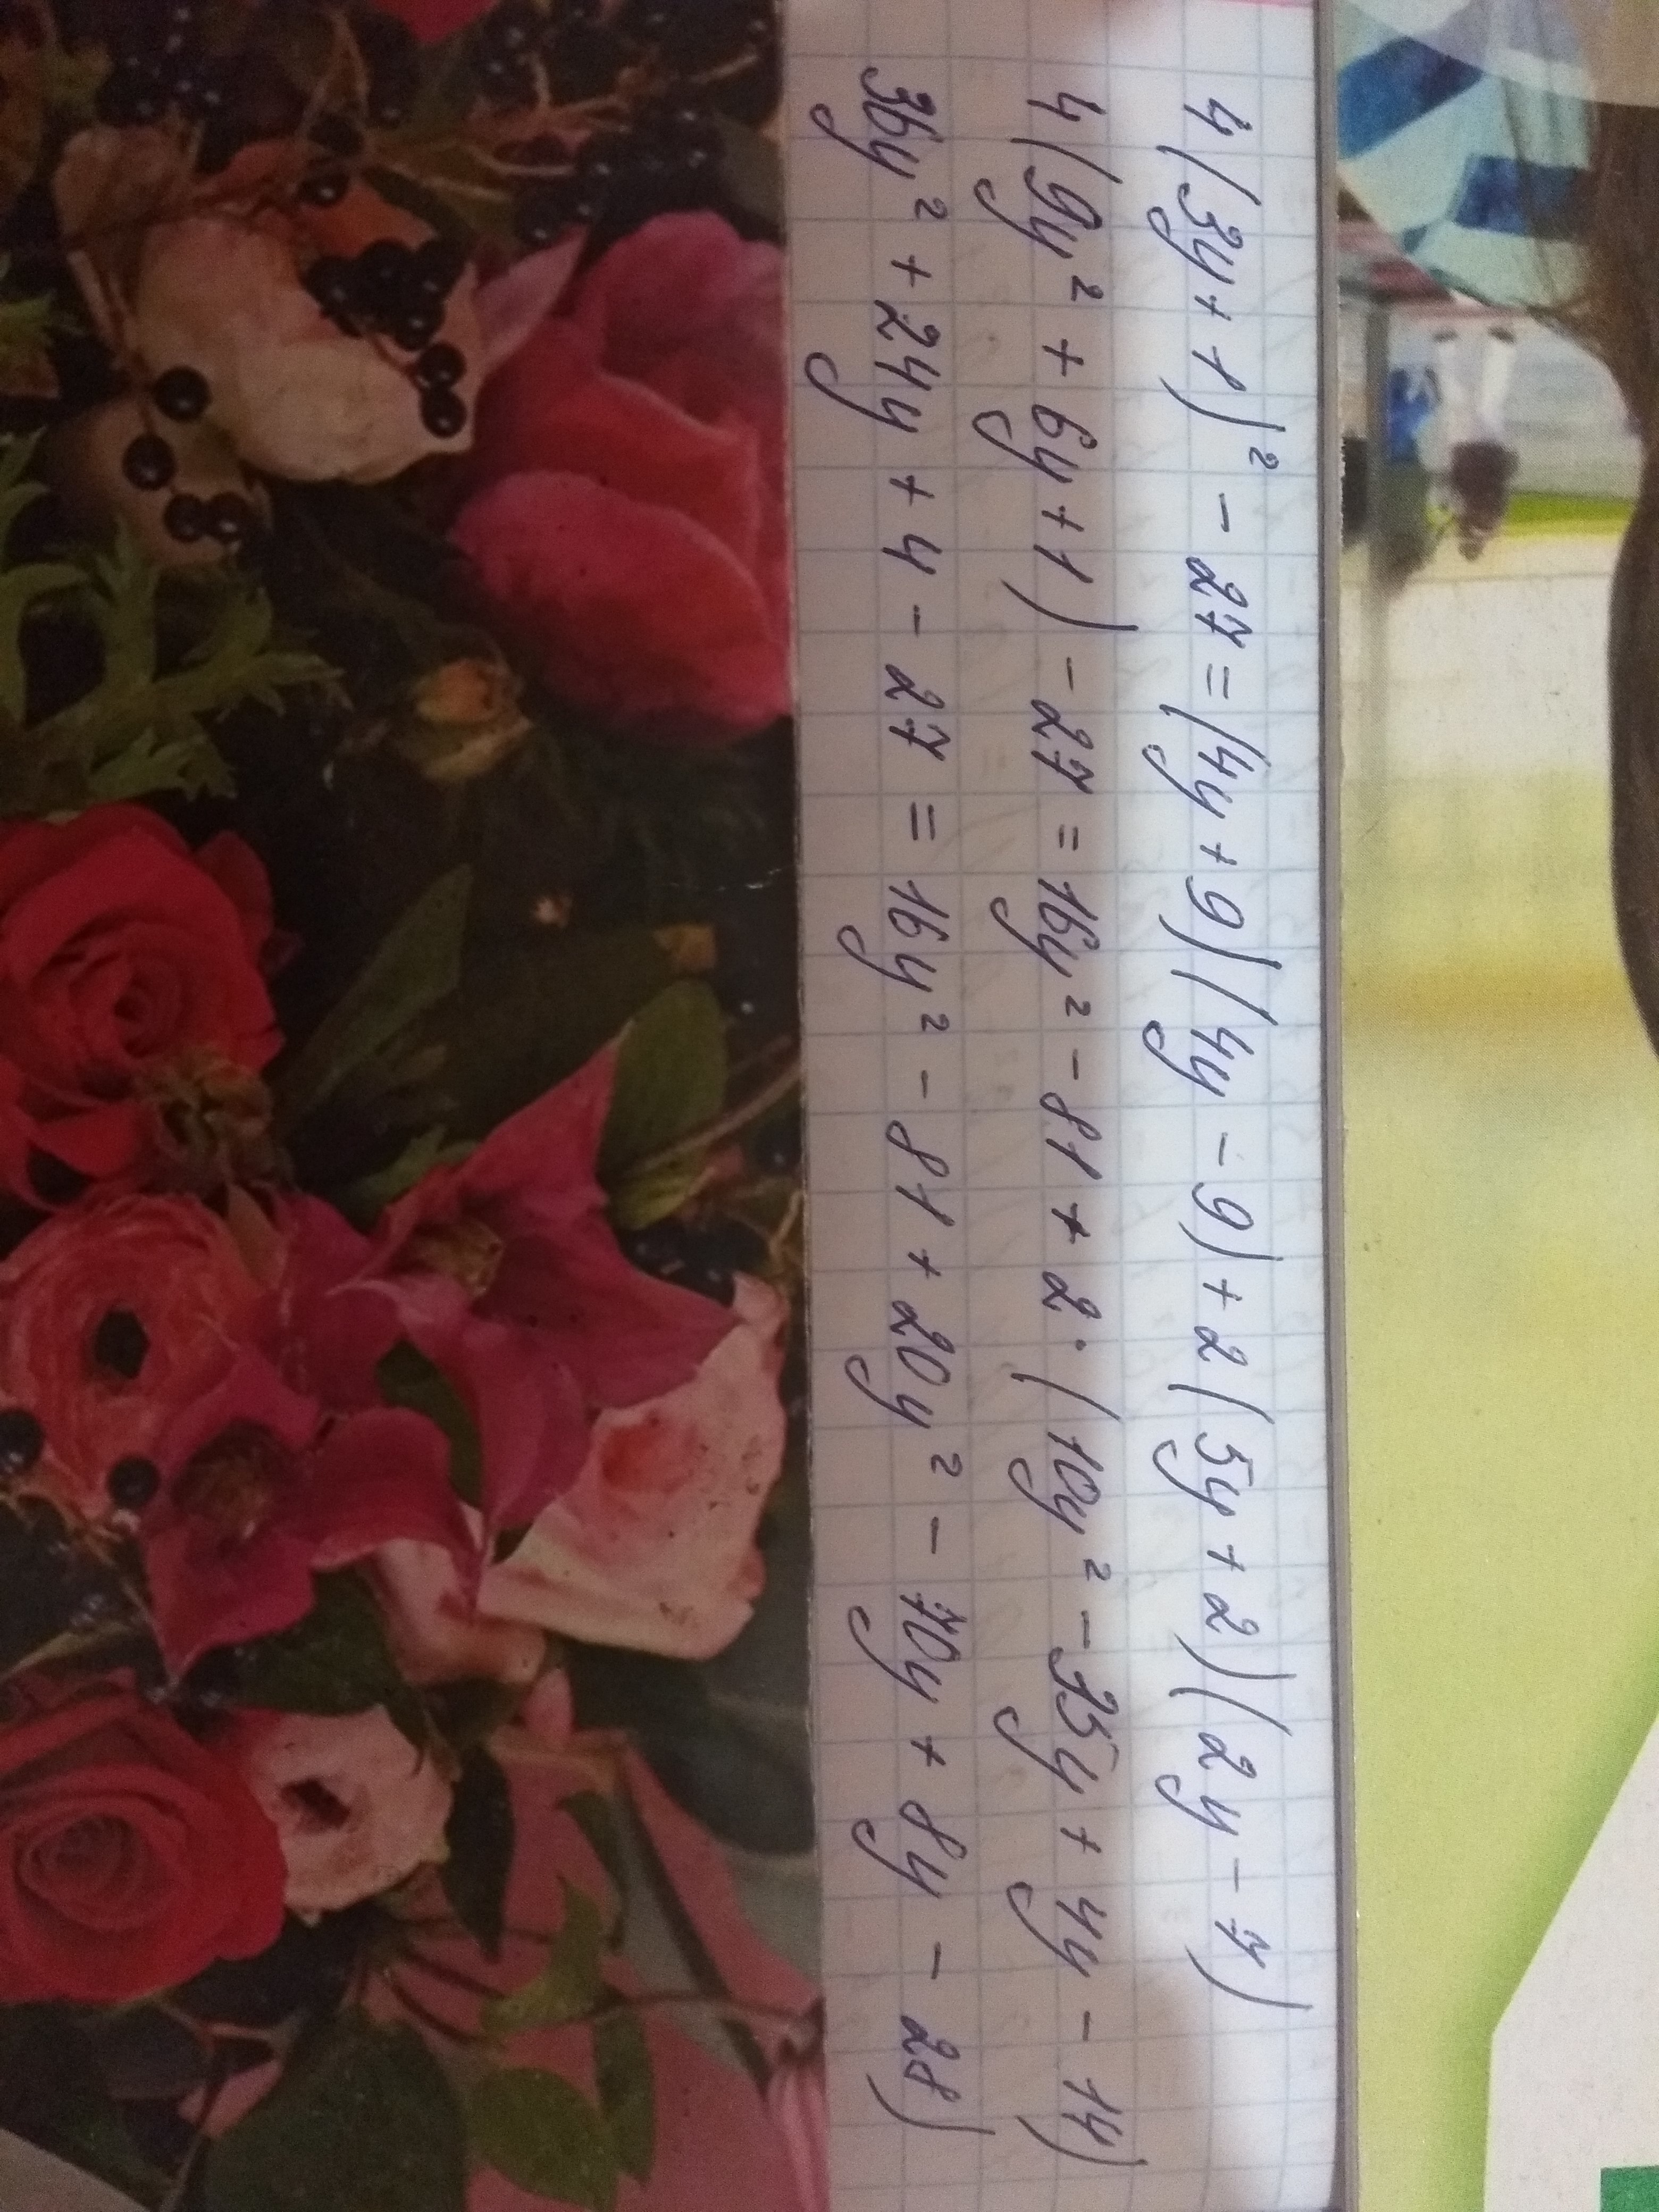 4(3y+1)² - 27 = (4y+9)(4y-9)+2(5y+2)(2y-7)
4(9y² + 6y+1) - 27 = 16y² - 81 + 2·(10y² - 35y + 4y - 14)
36y² + 24y + 4 - 27 = 16y² - 81 + 20y² - 70y + 8y - 28)